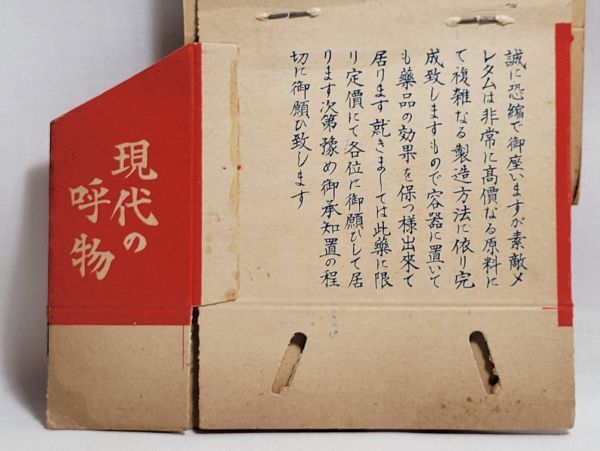 誠に恐縮で御座いますが素敵メ
レタムは非常に高價なる原料に
て複雑なる製造方法に依り完
成致しますもので容器に置いて
も藥品の効果を保つ様出來て
居ります就きましては此藥に限
り定價にて各位に御願ひして居
ります次第豫め御承知置の程
切に御願ひ致します
現代の
呼物